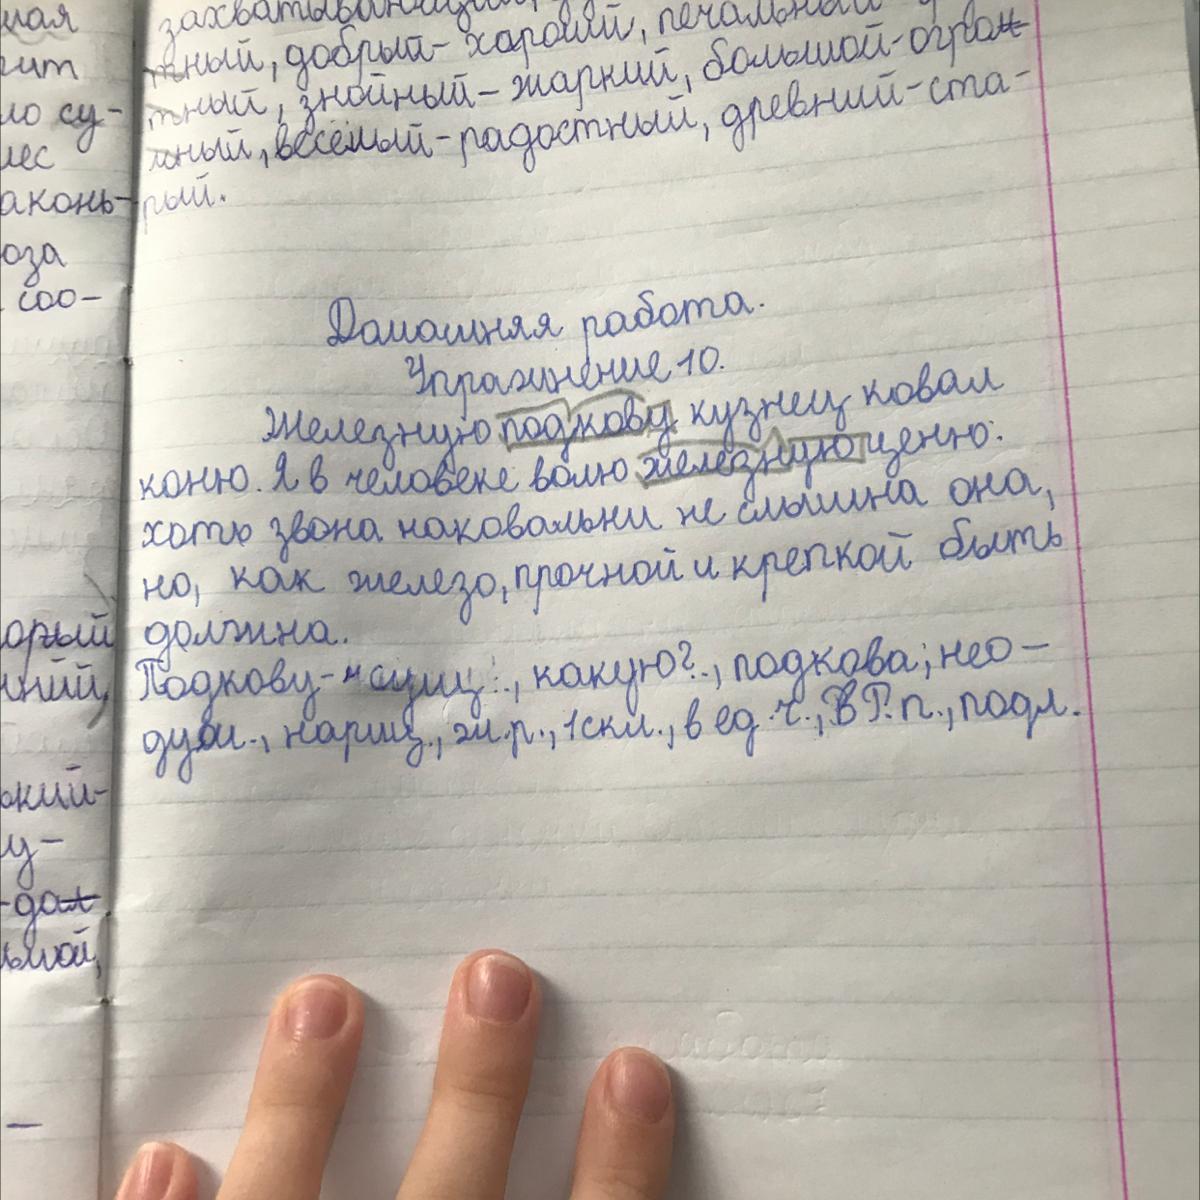 захватывающий,
ная тный, добрый- хароший, печальный
чит тный, знойный- жаркий, большой-огром-
ло су- мный, весёлый-радостный, древний-ста-
лес рый.
аконь-
оза
соо-
Домошняя работа.
Упражнение 10.
Железную подкову кузнец ковал
коню. Я в человеке волю железную ценю:
хоть звона наковальни не слышна она,
но, как железо, прочной и крепкой быть
должна.
орый
ний,
Подкову- , какую?., подкова; нео-
душ., нариц., ж.р., 1скл., в ед.ч., В Р.п., подл.
окий-
у-
-дат
ьной,